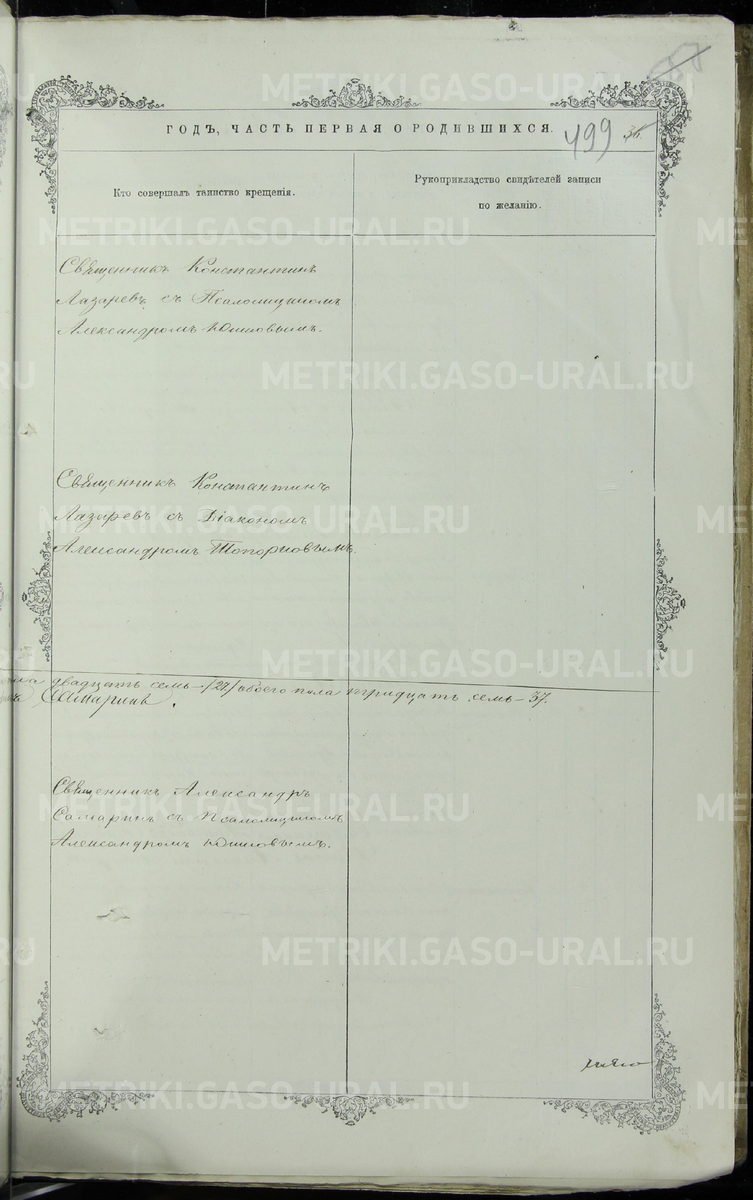 ГОДЪ, ЧАСТЬ ПЕРВАЯ О РОДИВШИХСЯ.
499
Кто совершалъ таинство крещенія.
Рукоприкладство свидѣтелей записи
по желанію.
Священникъ Константинъ
Лазаревъ съ Псаломщикомъ
Александромъ
Священникъ Константинъ
Лазаревъ съ Діакономъ
Александромъ Топорковымъ.
двадцать семь-/27/ обоего пола тридцать семь-37.
Самаринъ
Священникъ Александръ
Самаринъ съ Псаломщикомъ
Александромъ
METRIKI.GASO-URAL.RU